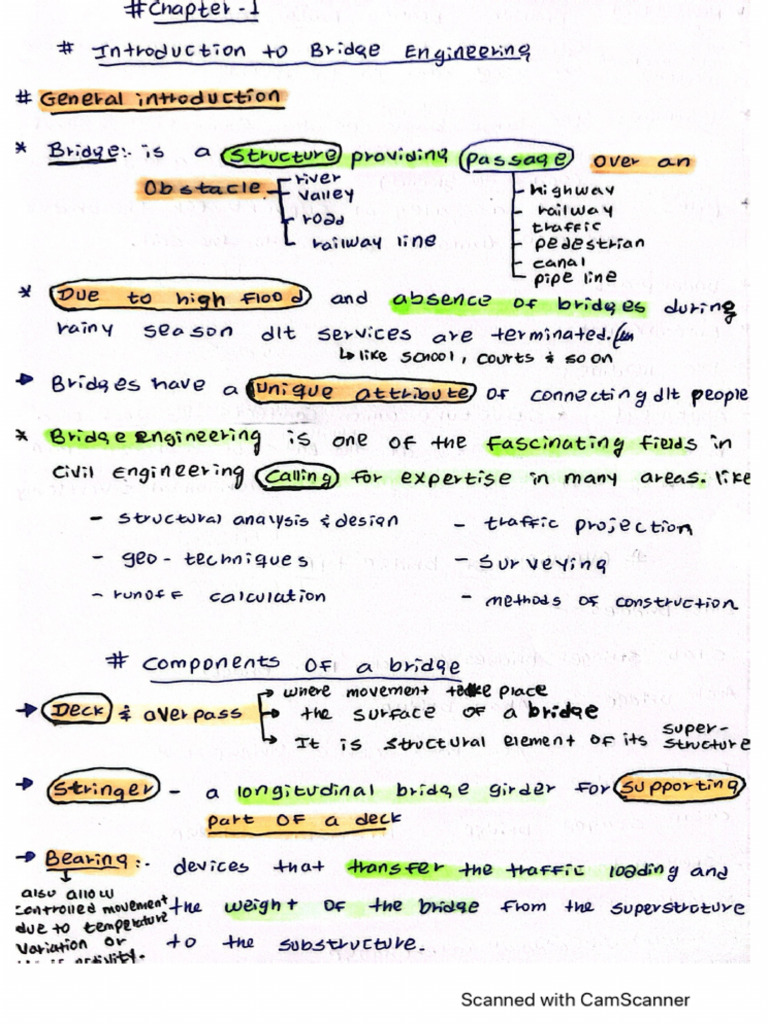 # Chapter - 1
# Introduction to Bridge Engineering
# General introduction
* Bridge:- is a structure providing passage over an
Obstacle
river
valley
road
railway line
highway
railway
traffic
pedestrian
canal
pipe line
* Due to high flood and absence of bridges during
rainy season dlt services are terminated.
↳ like school, courts & so on
→ Bridges have a unique attribute of connecting dlt people
* Bridge Engineering is one of the fascinating fields in
civil Engineering calling for expertise in many areas. like
- structural analysis & design
- traffic projection
- geo-techniques
- surveying
- runoff calculation
- methods of construction
# Components of a bridge
→ Deck & overpass
→ where movement take place
→ the surface of a bridge
→ It is structural element of its super-structure
→ Stringer - a longitudinal bridge girder for supporting
part of a deck
→ Bearing:- devices that transfer the traffic loading and
the weight of the bridge from the superstrcture
to the substructure.
also allow
controlled movement
due to temperature
variation or
Scanned with CamScanner